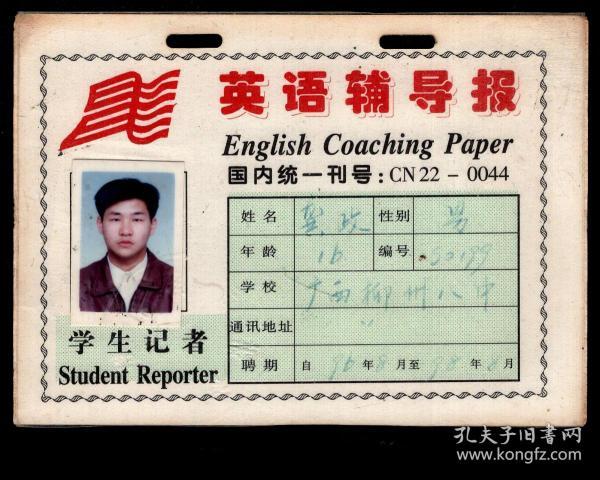 英语辅导报
English Coaching Paper
国内统一刊号:CN 22 - 0044
姓名 性别 男
年龄 16 编号 50199
学校 广西柳州八中
通讯地址 〃
聘期 自 96 年 8 月至 98 年 8 月
学生记者
Student Reporter
孔夫子旧书网
www.kongfz.com